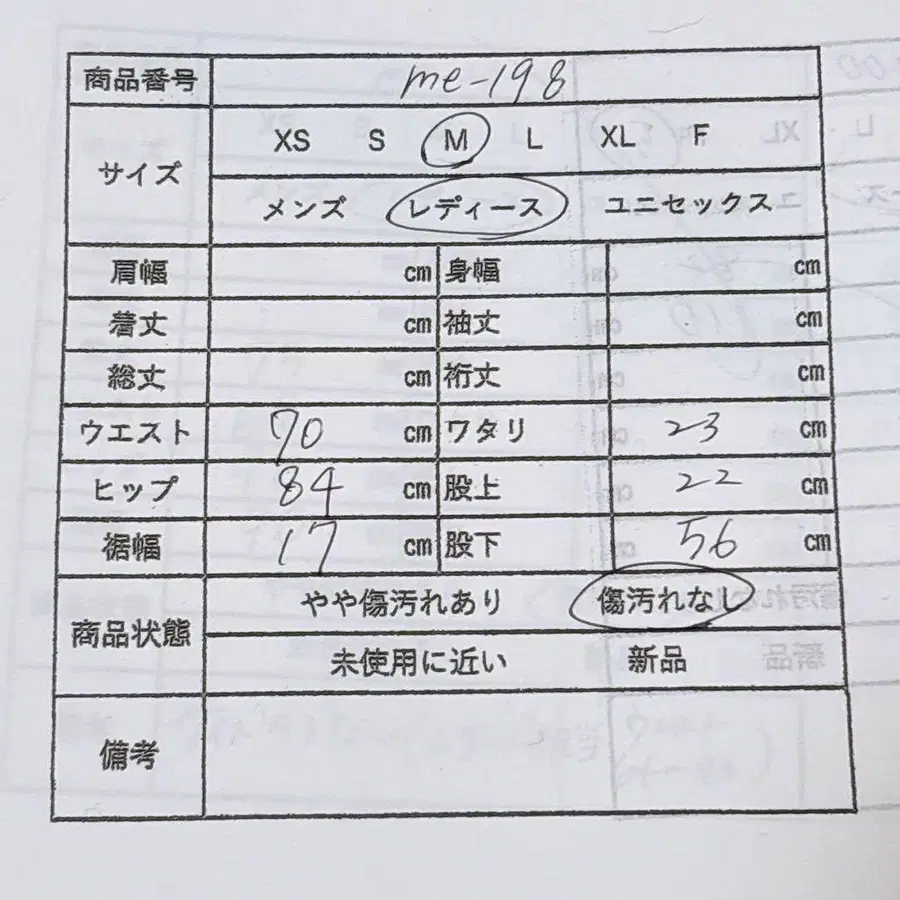 商品番号 me-198
サイズ XS S M L XL F
メンズ レディース ユニセックス
肩幅 cm 身幅 cm
着丈 cm 袖丈 cm
総丈 cm 裄丈 cm
ウエスト 70 cm ワタリ 23 cm
ヒップ 84 cm 股上 22 cm
裾幅 17 cm 股下 56 cm
商品状態 やや傷汚れあり 傷汚れなし
未使用に近い 新品
備考